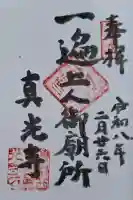 奉拝
令和八年
二月廿六日
一遍上人御廟所
真光寺